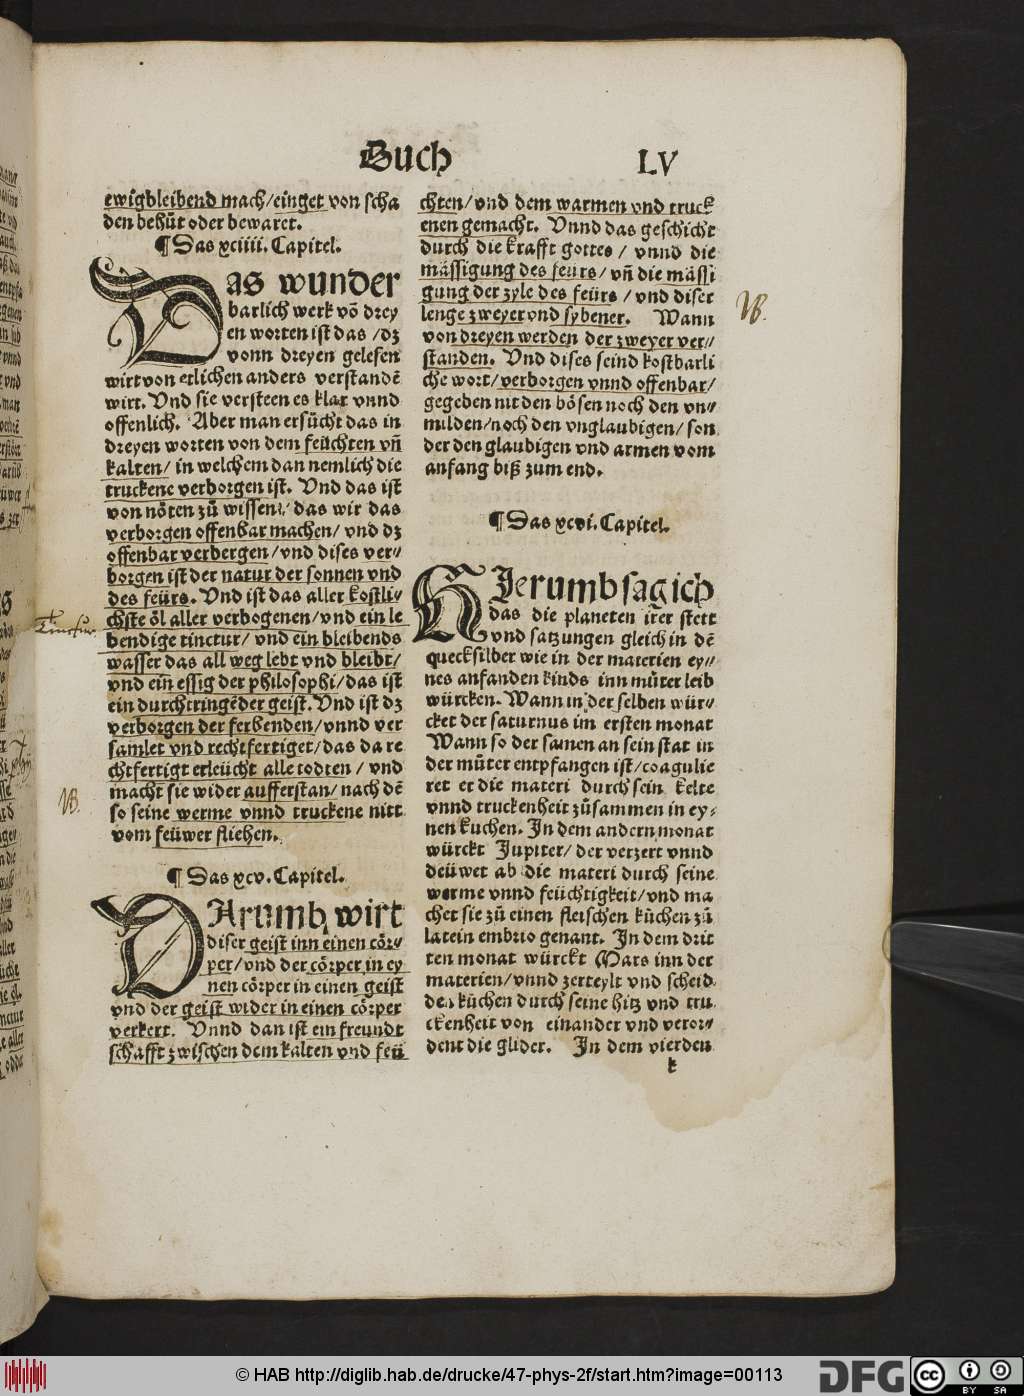 Buch LV
ewigbleibend mach/einget von scha
den behüt oder bewaret.
¶ Das xciiii. Capitel.
Das wunder
barlich werk võ drey
en worten ist das/dz
vonn dreyen gelesen
wirt von etlichen anders verstandẽ
wirt. Vnd sie versteen es klar vnnd
offenlich. Aber man ersücht das in
dreyen worten von dem feüchten vñ
kalten/in welchem dan nemlich die
truckene verborgen ist. Vnd das ist
von nöten zů wissen/das wir das
verborgen offenbar machen/vnd dz
offenbar verbergen/vnd dises ver⸗
borgen ist der natur der sonnen vnd
des feürs. Vnd ist das aller kostli⸗
chste öl aller verbogenen/vnd ein le
bendige tinctur/vnd ein bleibends
wasser das all weg lebt vnd bleibt/
vnd ein essig der philosophi/das ist
ein durchtringẽder geist. Vnd ist dz
verborgen der ferbenden/vnnd ver
samlet vnd rechtfertiget/das da re
chtfertigt erleücht alle todten/vnd
macht sie wider aufferstan/nach dẽ
so seine werme vnnd truckene nitt
vom feüwer fliehen.
¶ Das xcv. Capitel.
DArumb wirt
diser geist inn einen cör⸗
per/vnd der cörper in ey
nen cörper in einen geist
vnd der geist wider in einen cörper
verkert. Vnnd dan ist ein freundt
schafft zwischen dem kalten vnd feü
chten/vnd dem warmen vnd truck
enen gemacht. Vnnd das geschicht
durch die krafft gottes/vnnd die
mässigung des feürs/vñ die mässi
gung der zyle des feürs/vnd diser
lenge zweyer vnd sybener. Wann
von dreyen werden der zweyer ver⸗
standen. Vnd dises seind kostbarli
che wort/verborgen vnnd offenbar/
gegeben nit den bösen noch den vn⸗
milden/noch den vnglaubigen/son
der den glaubigen vnd armen vom
anfang biß zum end.
¶ Das xcvi. Capitel.
HIerumb sag ich
das die planeten irer stett
vnd satzungen gleich in dẽ
quecksilber wie in der materien ey⸗
nes anfanden kinds inn můter leib
würcken. Wann in der selben wür⸗
cket der saturnus im ersten monat
Wann so der samen an sein stat in
der můter entpfangen ist/coagulie
ret er die materi durch sein kelte
vnnd truckenheit zůsammen in ey⸗
nen kuchen. In dem andern monat
würckt Jupiter/der verzert vnnd
deüwet ab die materi durch seine
werme vnnd feüchtigkeit/vnd ma
chet sie zů einen fleischen küchen zů
latein embrio genant. In dem drit
ten monat würckt Mars inn der
materien/vnnd zerteylt vnd scheid
den küchen durch seine hitz vnd tru
ckenheit von einander vnd veror⸗
dent die glider. In dem vierden
k
Tinctur
NB.
NB.
© HAB http://diglib.hab.de/drucke/47-phys-2f/start.htm?image=00113
DFG cc BY SA